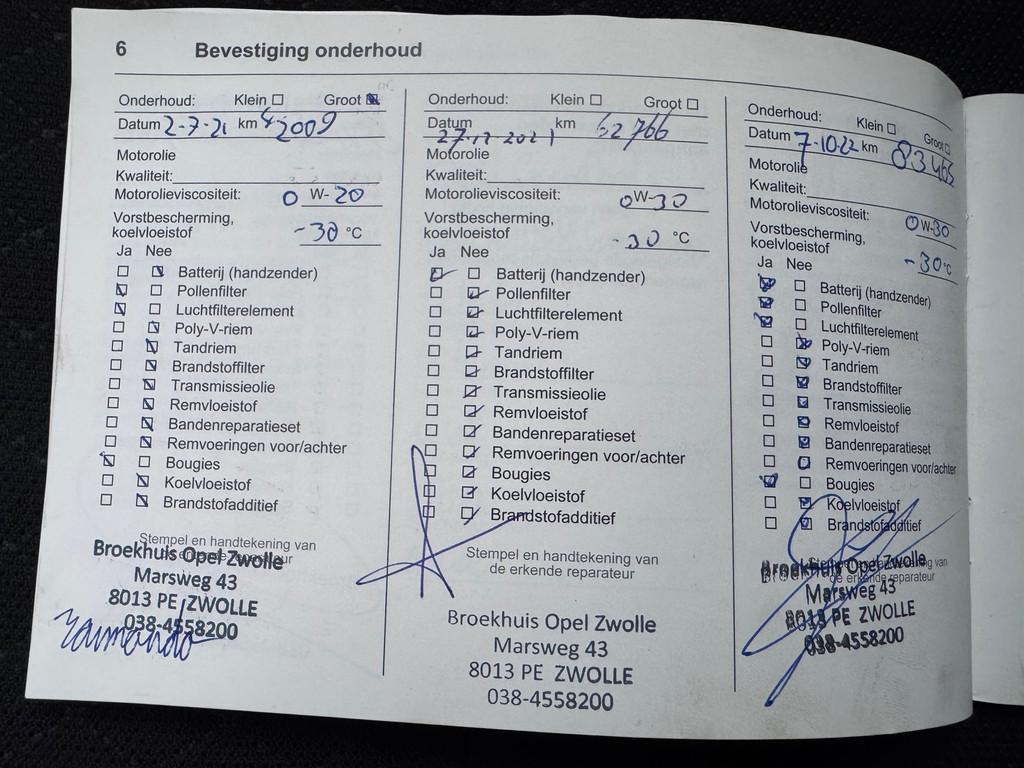 6 Bevestiging onderhoud
Onderhoud: Klein Groot
Datum 2-7-21 km 42009
Motorolie
Kwaliteit:
Motorolieviscositeit: 0 W- 20
Vorstbescherming,
koelvloeistof -30 °C
Ja Nee
Batterij (handzender)
Pollenfilter
Luchtfilterelement
Poly-V-riem
Tandriem
Brandstoffilter
Transmissieolie
Remvloeistof
Bandenreparatieset
Remvoeringen voor/achter
Bougies
Koelvloeistof
Brandstofadditief
Stempel en handtekening van
Broekhuis Opel Zwolle
Marsweg 43
8013 PE ZWOLLE
038-4558200
Onderhoud: Klein Groot
Datum 27-12-2021 km 62766
Motorolie
Kwaliteit:
Motorolieviscositeit: 0W-30
Vorstbescherming,
koelvloeistof -30 °C
Ja Nee
Batterij (handzender)
Pollenfilter
Luchtfilterelement
Poly-V-riem
Tandriem
Brandstoffilter
Transmissieolie
Remvloeistof
Bandenreparatieset
Remvoeringen voor/achter
Bougies
Koelvloeistof
Brandstofadditief
Stempel en handtekening van
de erkende reparateur
Broekhuis Opel Zwolle
Marsweg 43
8013 PE ZWOLLE
038-4558200
Onderhoud: Klein Groot
Datum 7-10-22 km 83465
Motorolie
Kwaliteit:
Motorolieviscositeit: 0W-30
Vorstbescherming,
koelvloeistof -30°C
Ja Nee
Batterij (handzender)
Pollenfilter
Luchtfilterelement
Poly-V-riem
Tandriem
Brandstoffilter
Transmissieolie
Remvloeistof
Bandenreparatieset
Remvoeringen voor/achter
Bougies
Koelvloeistof
Brandstofadditief
Broekhuis Opel Zwolle
de erkende reparateur
Marsweg 43
8013 PE ZWOLLE
038-4558200